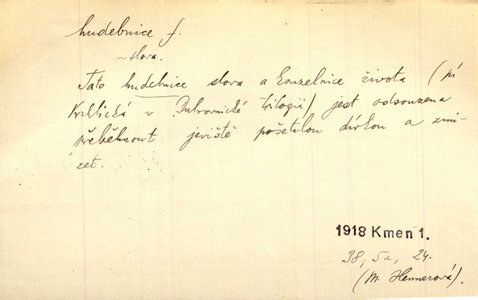 hudebnice f.
~ slova.
Tato hudebnice slova a kouzelnice života (pí
v Dubrovnické trilogii) jest odsouzena
přeběhnout jeviště pošetilou dívkou a zmi-
zet.
1918 Kmen 1.
38, 5a, 24.
(M. Hennerová).